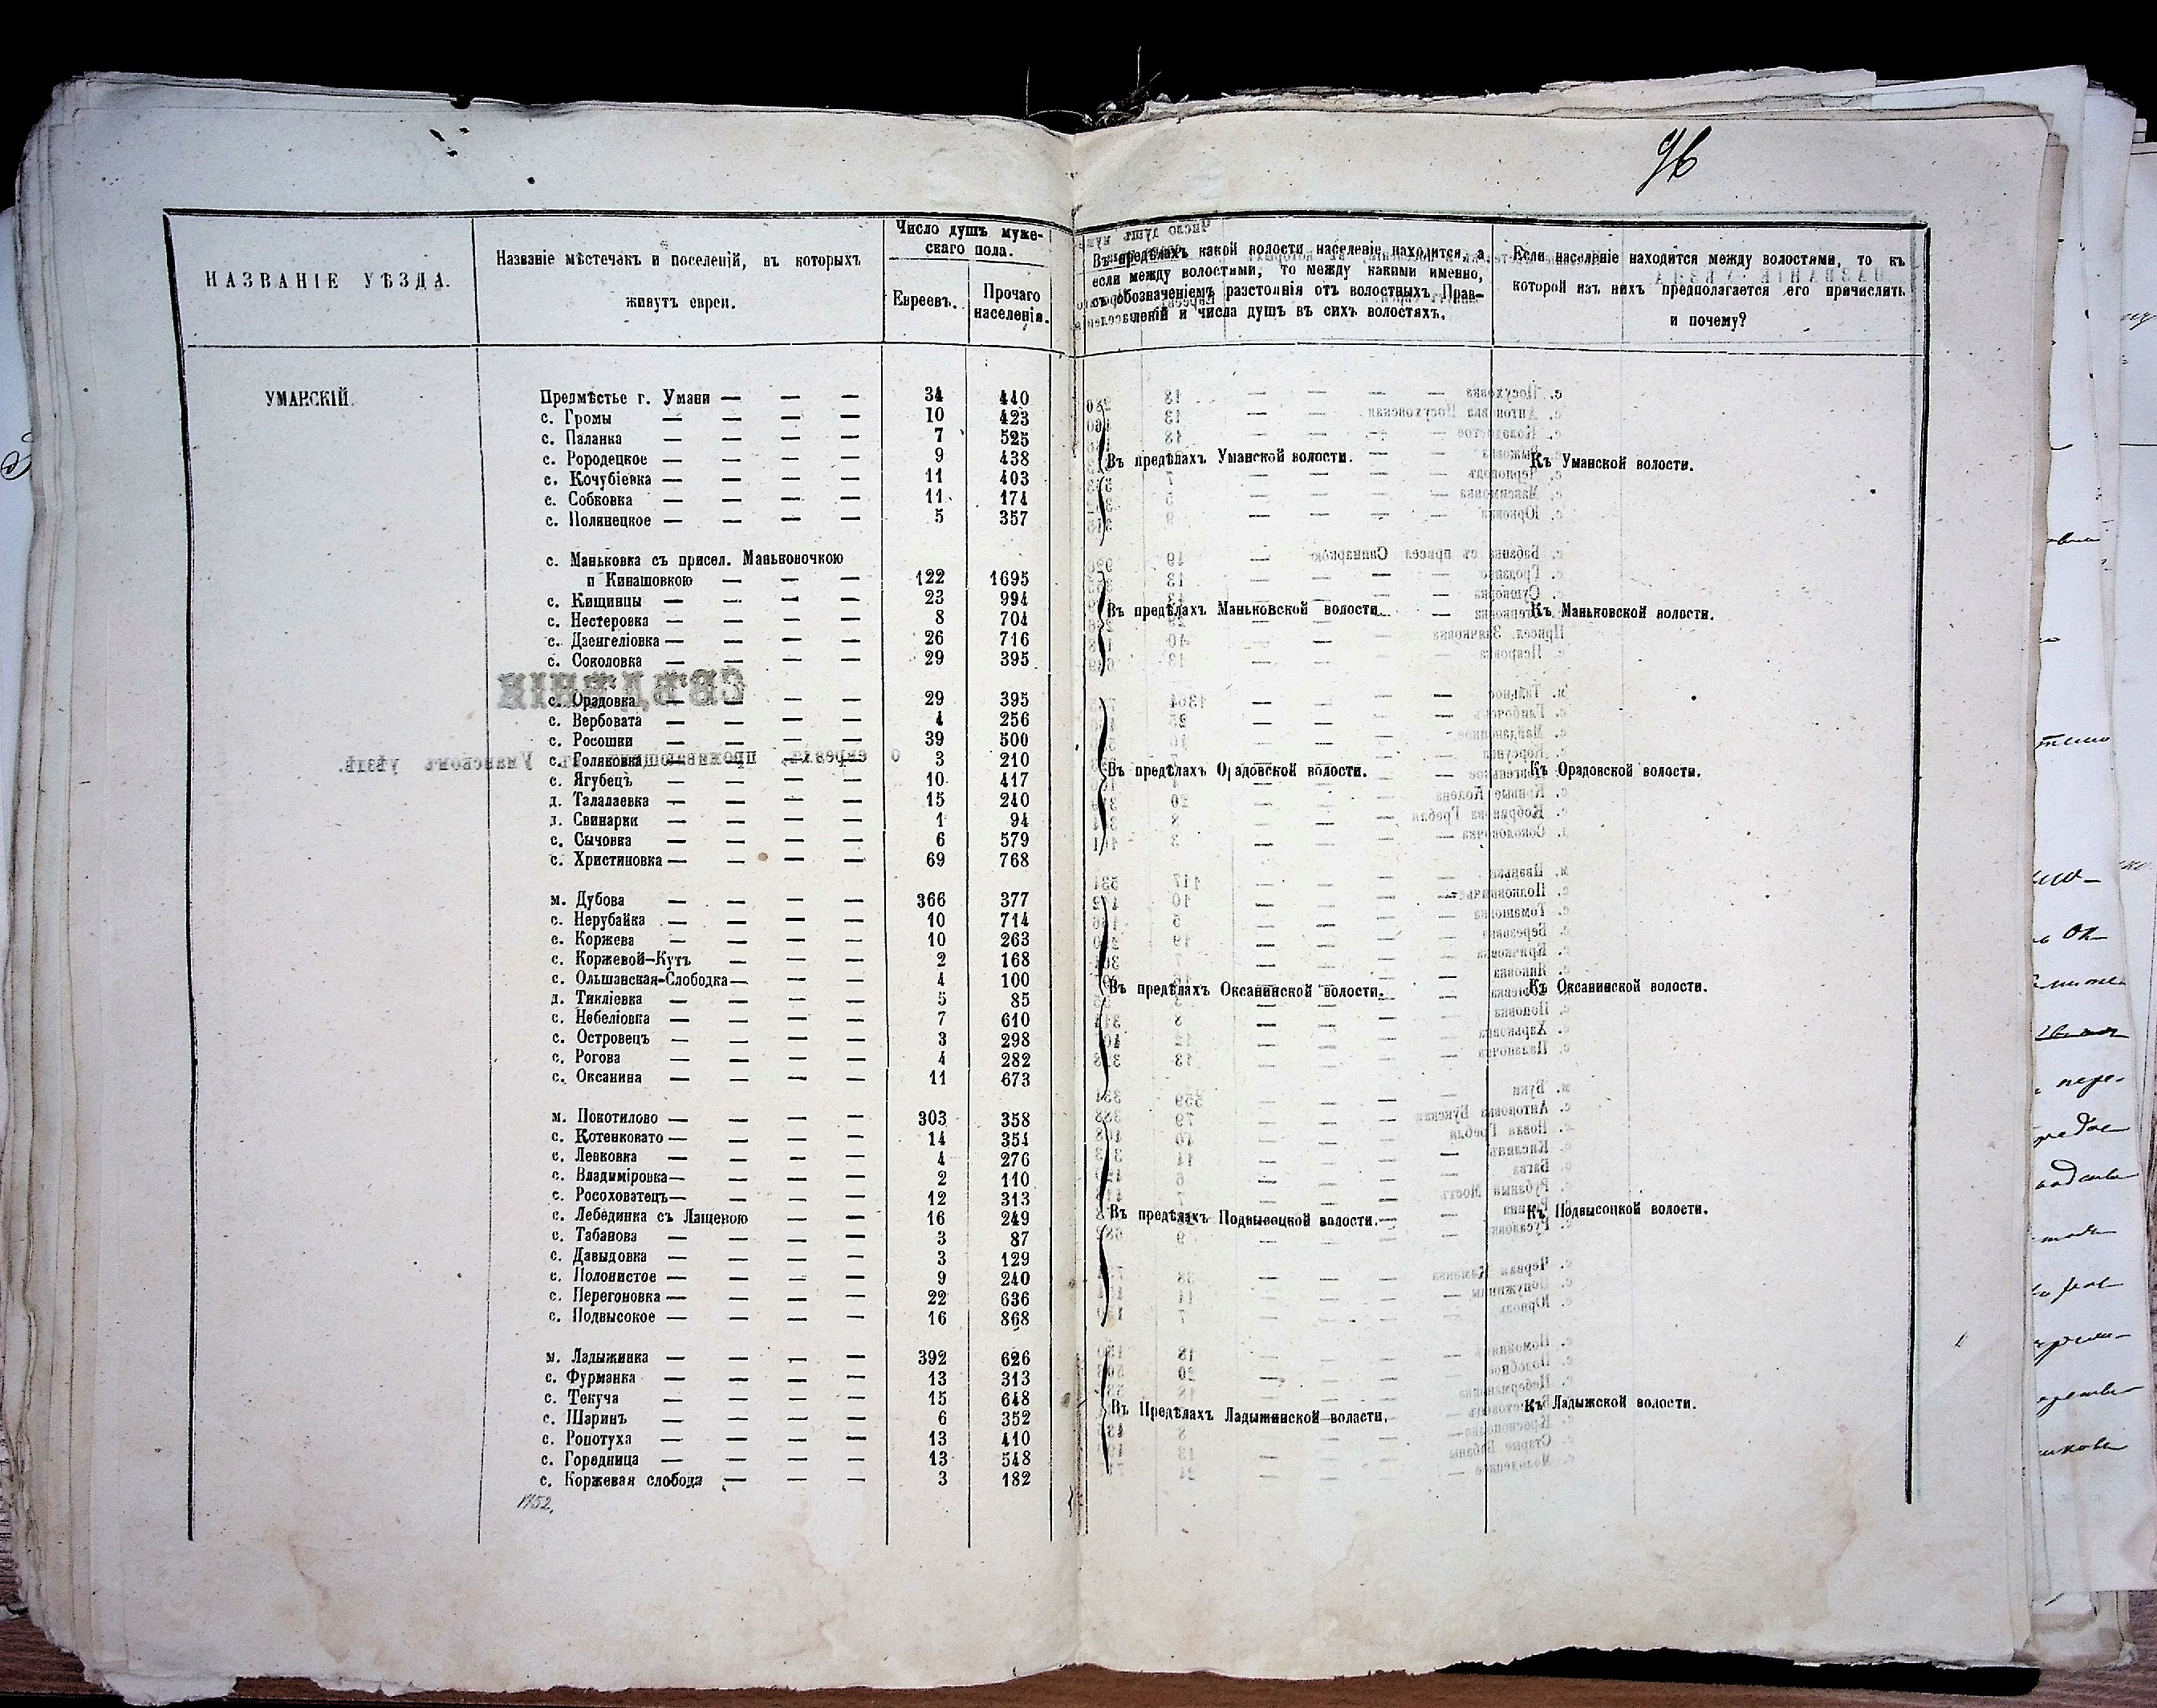 96
НАЗВАНІЕ УѢЗДА.
Названіе мѣстечакъ и поселеній, въ которыхъ
живутъ евреи.
Число душъ муже-
скаго пола.
Евреевъ.
Прочаго
населенія.
Въ предѣлахъ какой волости населеніе находится, а
если между волостями, то между какими именно,
съ обозначеніемъ разстоянія отъ волостныхъ Прав-
леній и числа душъ въ сихъ волостяхъ.
Если населѣніе находится между волостями, то къ
которой изъ нихъ предполагается его причислить
и почему?
УМАНСКІЙ.
Предмѣстье г. Умани — — — 34 440
с. Громы — — — — 10 423
с. Паланка — — — — 7 525
с. Рородецкое — — — — 9 438
с. Кочубіевка — — — — 11 403
с. Собковка — — — — 11 174
с. Полянецкое — — — — 5 357
Въ предѣлахъ Уманской волости.
Къ Уманской волости.
с. Маньковка съ присел. Маньковочкою
и Кинашовкою — — — 122 1695
с. Кищинцы — — — — 23 994
с. Нестеровка — — — — 8 704
с. Дзенгеліовка — — — — 26 716
с. Соколовка — — — — 29 395
Въ предѣлахъ Маньковской волости.
Къ Маньковской волости.
с. Орадовка — — — — 29 395
с. Вербовата — — — — 4 256
с. Росошки — — — — 39 500
с. Голяковка — — — — 3 210
с. Ягубецъ — — — — 10 417
д. Талалаевка — — — — 15 240
д. Свинарки — — — — 1 94
с. Сычовка — — — — 6 579
с. Христиновка — — — — 69 768
Въ предѣлахъ Орадовской волости.
Къ Орадовской волости.
м. Дубова — — — — 366 377
с. Нерубайка — — — — 10 714
с. Коржева — — — — 10 263
с. Коржевой-Кутъ — — — 2 168
с. Ольшанская-Слободка — — — 4 100
д. Тикліевка — — — — 5 85
с. Небеліовка — — — — 7 610
с. Островецъ — — — — 3 298
с. Рогова — — — — 4 282
с. Оксанина — — — — 11 673
Въ предѣлахъ Оксанинской волости.
Къ Оксанинской волости.
м. Покотилово — — — — 303 358
с. Котенковато — — — — 14 354
с. Левковка — — — — 4 276
с. Владыміровка — — — — 2 110
с. Росоховатецъ — — — — 12 313
с. Лебединка съ Лащевою — — 16 249
с. Табанова — — — — 3 87
с. Давыдовка — — — — 3 129
с. Полонистое — — — — 9 240
с. Перегоновка — — — — 22 636
с. Подвысокое — — — — 16 868
Въ предѣлахъ Подвысоцкой волости.
Къ Подвысоцкой волости.
м. Ладыжинка — — — — 392 626
с. Фурманка — — — — 13 313
с. Текуча — — — — 15 648
с. Шаринъ — — — — 6 352
с. Ропотуха — — — — 13 410
с. Городница — — — — 13 548
с. Коржевая слобода — — — 3 182
Въ Предѣлахъ Ладыжинской власти.
Къ Ладыжской волости.
1752.